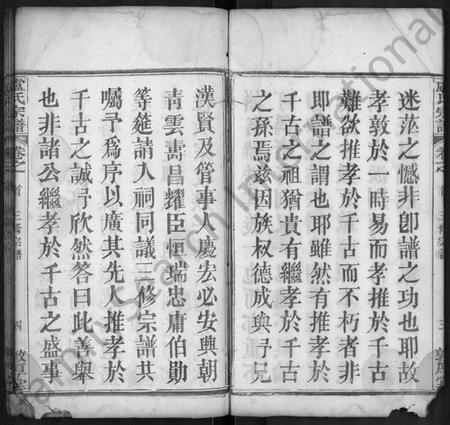 迷茫之憾非卽譜之功也耶故
孝敦於一時易而孝推於千古
難欲推孝於千古而不朽者非
卽譜之謂也耶雖然有推孝於
千古之祖猶貴有繼孝於千古
之孫焉茲因族叔德成與予兄
漢賢及管事人慶宏必安興朝
青雲壽昌耀臣恒瑞忠庸伯勛
等筵請人祠同議三修宗譜共
囑予爲序以廣其先人推孝於
千古之誠予欣然答曰此善舉
也非諸公繼孝於千古之盛事
盧氏宗譜
卷之首
三修宗譜
四
敦厚堂
FamilySearch International